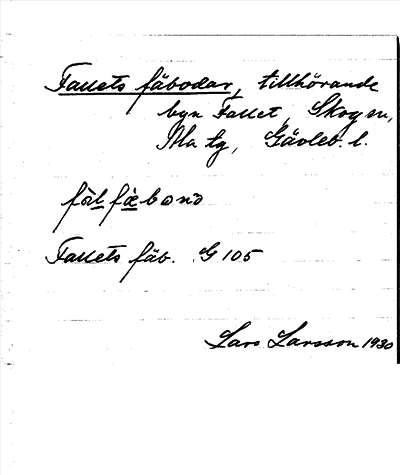 Fallets fäbodar, tillhörande
byn Fallet, Skog sn,
Ala tg, Gävleb. l.
fàl fæ̀bonɔ
Fallets fäb. G 105
Lars Larsson 1930